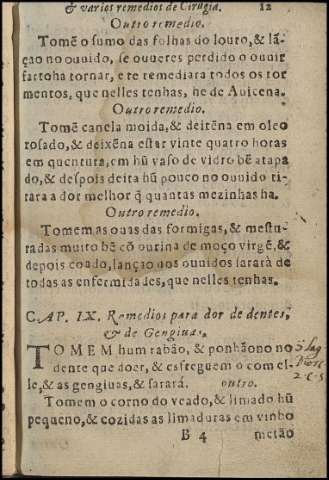 & varios remedios de Cirugia. 12
Outro remedio.
Tomẽ o sumo das folhas do louro, & lã-
çao no ouuido, se ouueres perdido o ouuir
fartoha tornar, e te remediara todos os tor
mentos, que nelles tenhas, he de Auicena.
Outro remedio.
Tomẽ canela moida, & deitẽna em oleo
rosado, & deixẽna estar vinte quatro horas
em quentura, em hũ vaso de vidro bẽ atapa
do, & despois deita hũ pouco no ouuido ti-
rara a dor melhor q̃ quantas mezinhas ha.
Outro remedio.
Tomem as ouas das formigas, & mestu-
radas muito bẽ cõ ourina de moço virgẽ, &
depois coado, lançao nos ouuidos sarará de
todas as enfermidades, que nelles tenhas.
CAP. IX. Remedios para dor de dentes,
& de Gengiuas.
TOMEM hum rabão, & ponhãono no
dente que doer, & esfreguem o com el-
le, & as gengiuas, & sarará. outro.
Tomem o corno do veado, & limado hũ
pequeno, & cozidas as limaduras em vinho
B 4 metão